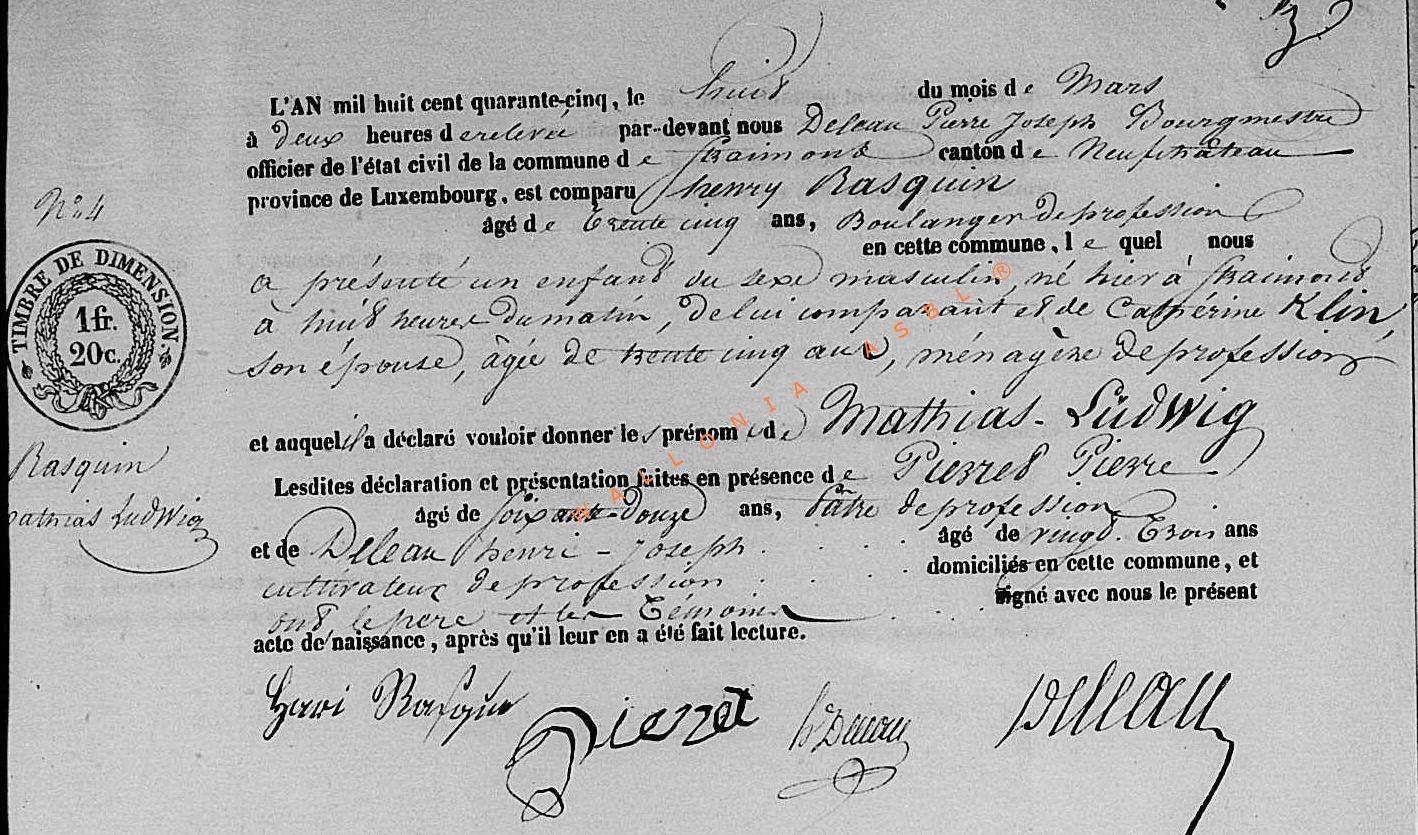 3
L'AN mil huit cent quarante-cinq, le huit du mois de Mars
à deux heures de relevée par-devant nous Deleau Pierre Joseph Bourgmestre
officier de l'état civil de la commune de Straimont canton de Neufchâteau
province de Luxembourg, est comparu henry Rasquin
âgé de trente cinq ans, Boulanger de profession
en cette commune, le quel nous
a présenté un enfant du sexe masculin, né hier à Straimont
à huit heures du matin, de lui comparant et de Cathérine Klin,
son épouse, âgée de trente cinq ans, ménagère de profession
et auquel il a déclaré vouloir donner les prénoms de Mathias-Lüdwig
Lesdites déclaration et présentation faites en présence de Pierret Pierre
âgé de soixante-douze ans, Pâtre de profession
et de Deleau henri-Joseph âgé de vingt trois ans
cultivateur de profession domiciliés en cette commune, et
ont le père et les témoins signé avec nous le présent
acte de naissance, après qu'il leur en a été fait lecture.
Henri Rasquin Pierret h Deleau Deleau
N° 4
TIMBRE DE DIMENSION
1fr.
20c.
Rasquin
Mathias Ludwig
WALLONIA ASBL ®